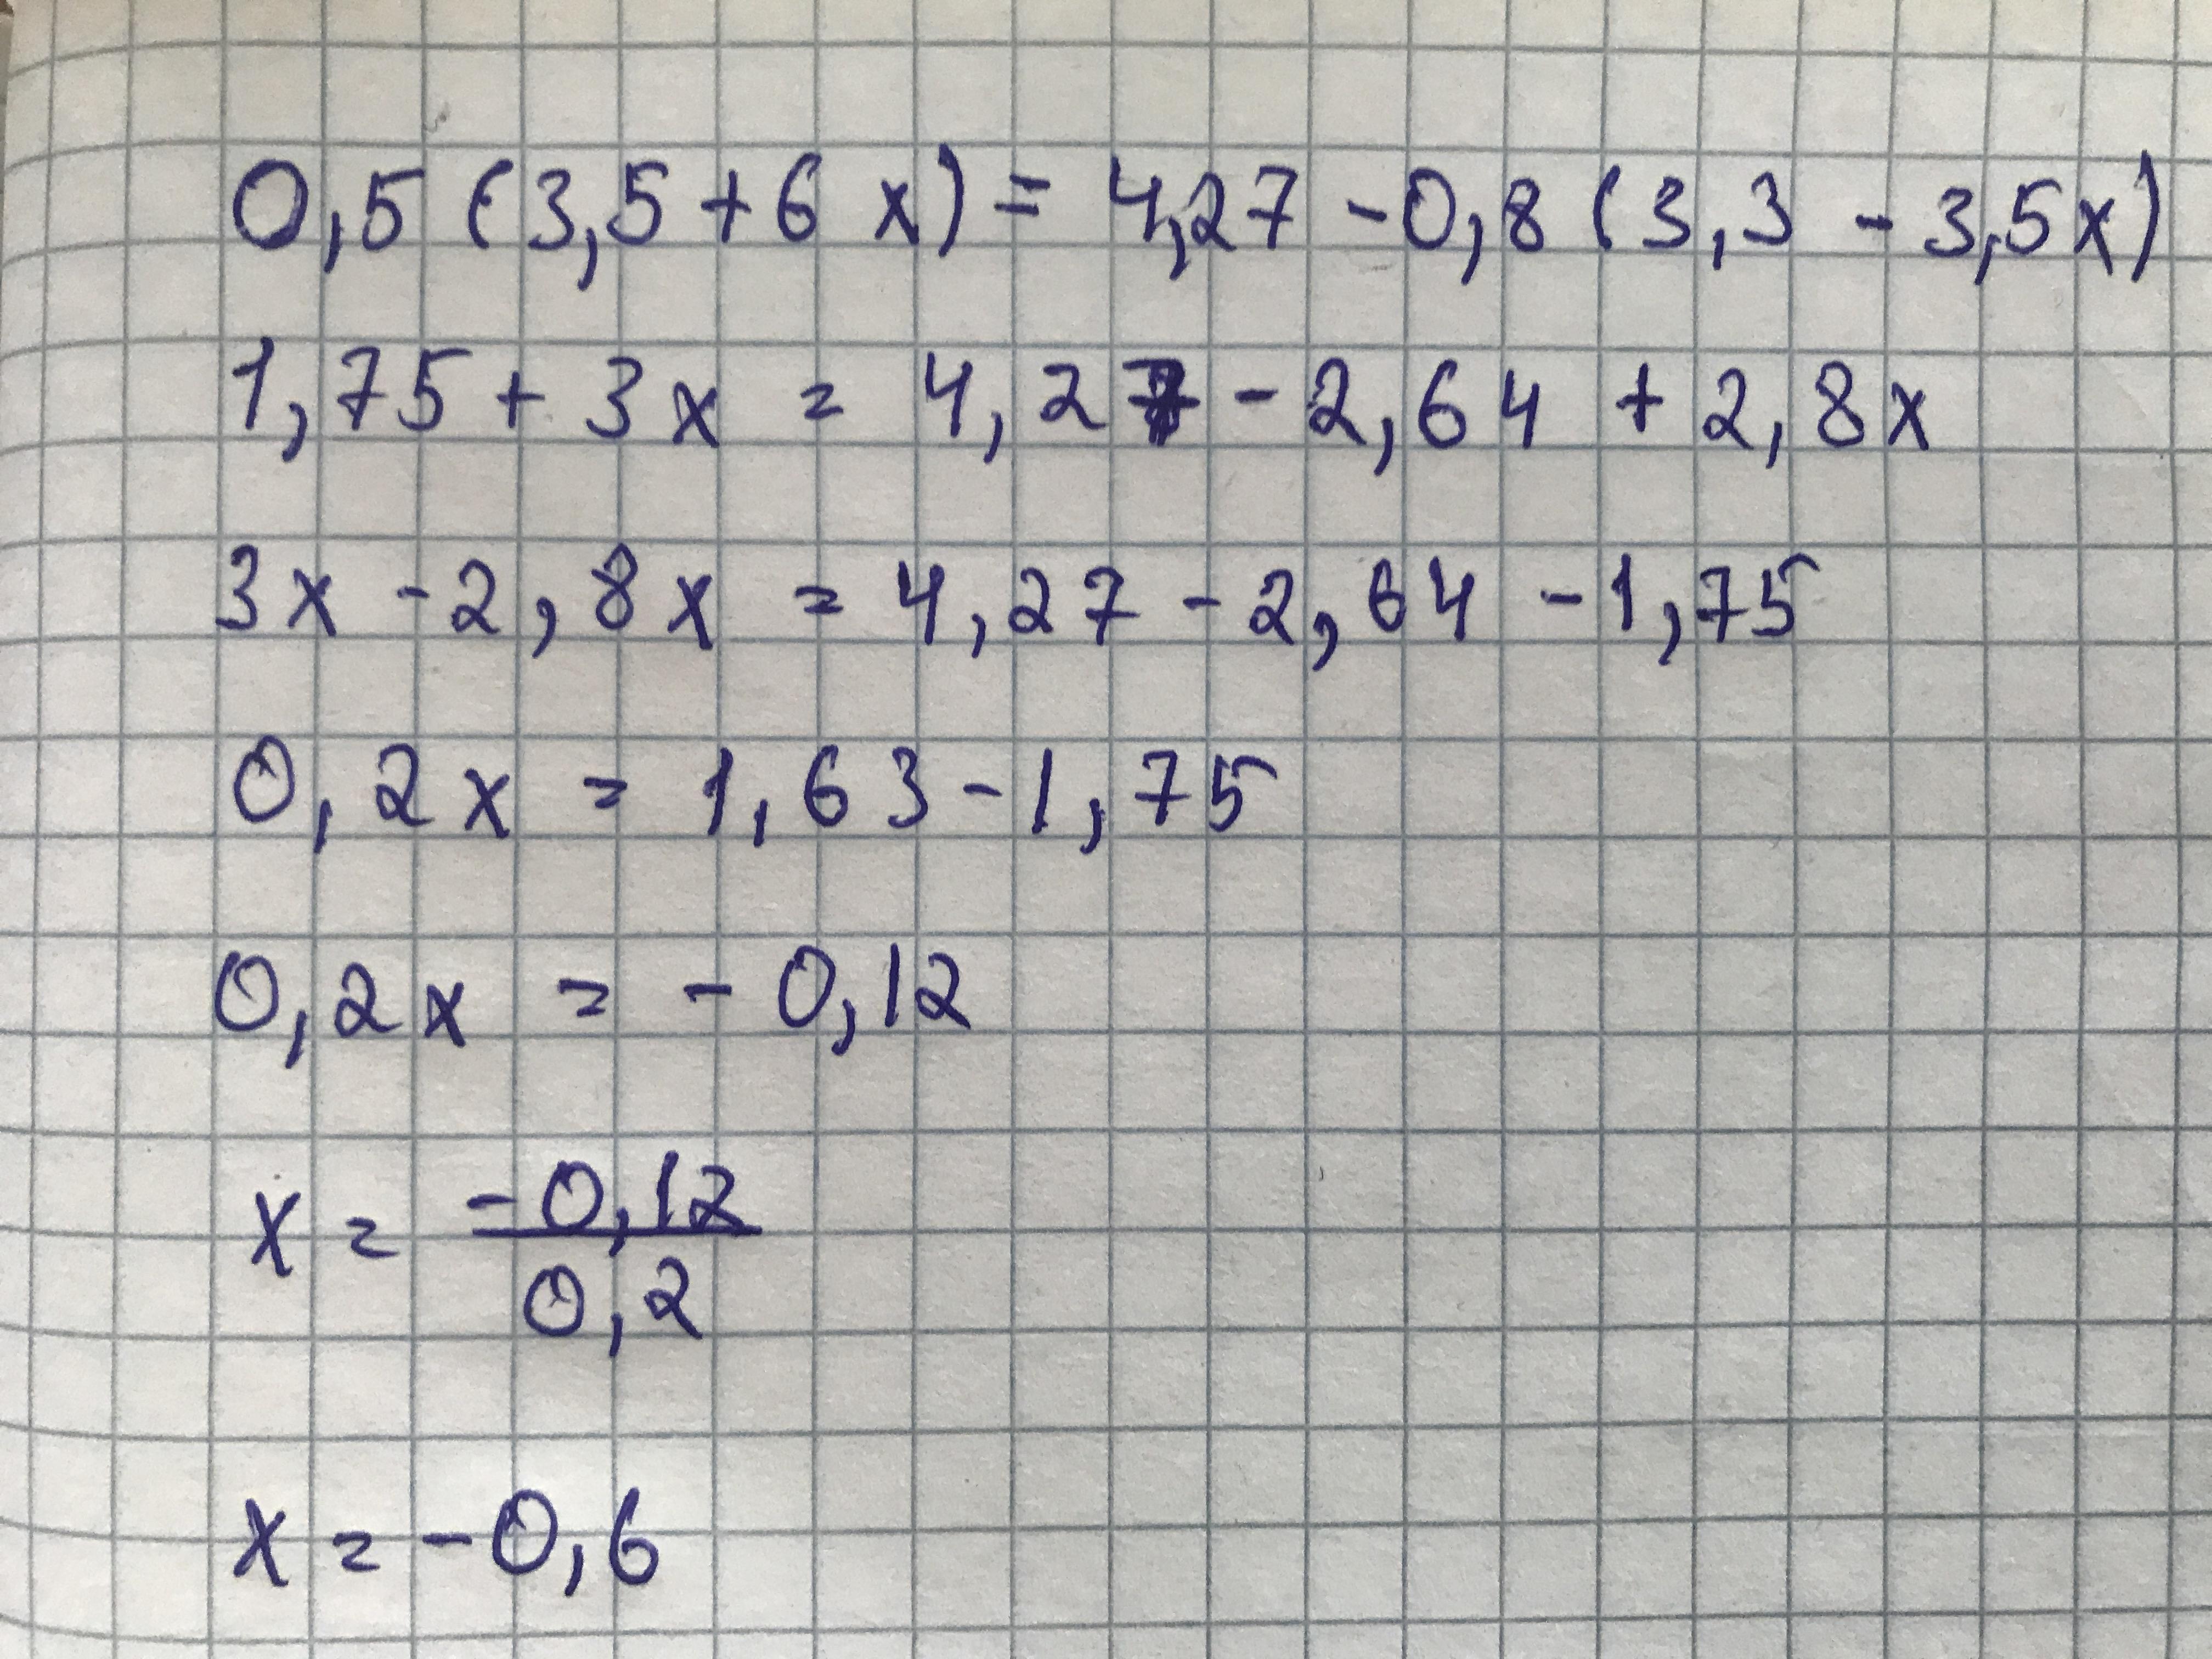 0,5 (3,5 + 6 x) = 4,27 - 0,8 (3,3 - 3,5x)
1,75 + 3x = 4,27 - 2,64 + 2,8x
3x - 2,8x = 4,27 - 2,64 - 1,75
0,2x = 1,63 - 1,75
0,2x = - 0,12
x = -0,12 / 0,2
x = -0,6